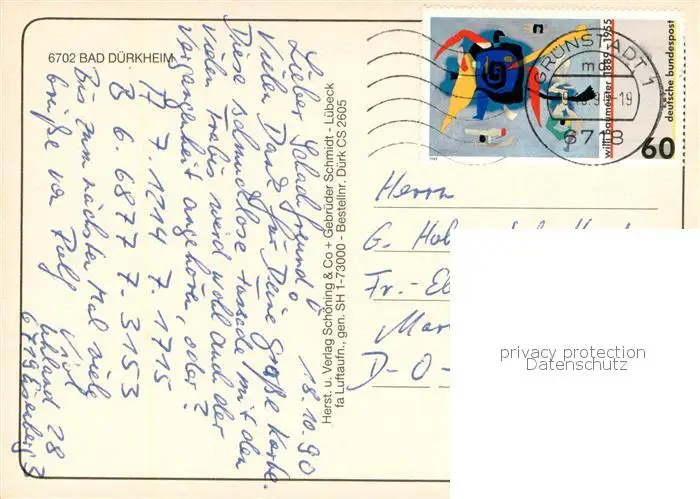 6702 BAD DÜRKHEIM
18.10.90
Lieber Schachfreund!
Vielen Dank für Deine große Karte.
Diese schmucklose Fassade mit den
vielen wird wohl auch der
Vergangenheit angehören, oder?
A 7. 1214 7. 1715
B 6. 6877 7. 3153
Bis zum nächsten Mal viele
Grüße von Rolf
28
6719 Eisenberg 3
Herst. u. Verlag Schöning & Co + Gebrüder Schmidt - Lübeck
fa Luftaufn., gen. SH 1-73000 - Bestellnr. Dürk CS 2605
GRÜNSTADT 1
6718
willi baumeister 1889-1955
deutsche bundespost
60
Herrn
G.
Fr.-
D-O-
privacy protection
Datenschutz